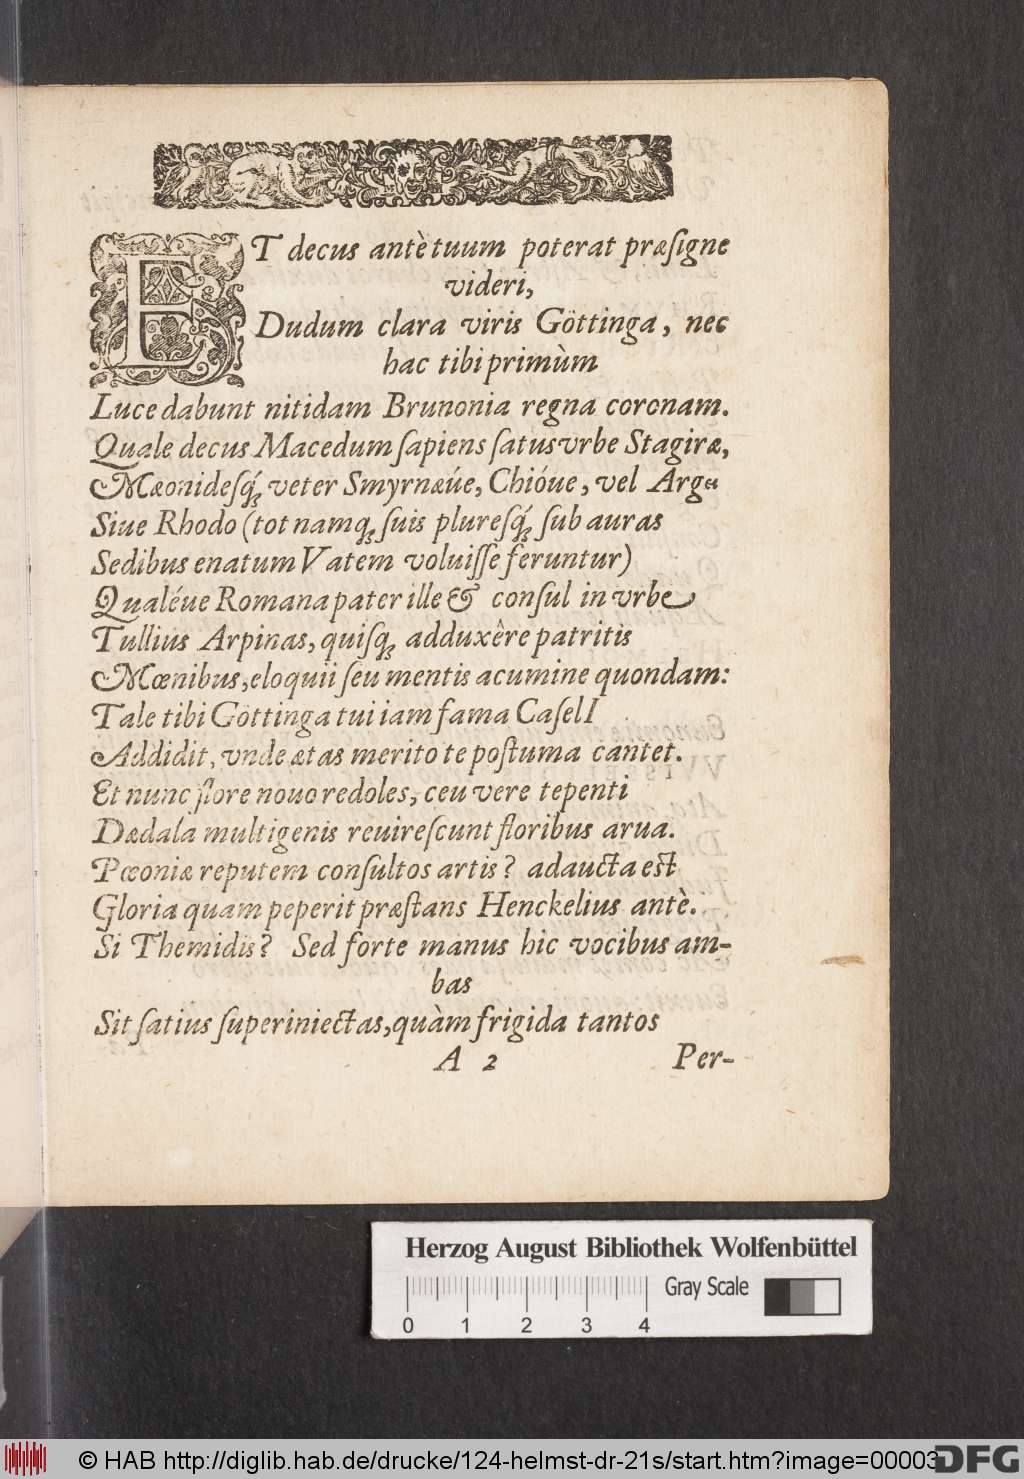 ET decus antè tuum poterat præſigne
videri,
Dudum clara viris Göttinga, nec
hac tibi primùm
Luce dabunt nitidam Brunonia regna coronam.
Quale decus Macedum ſapiens ſatus vrbe Stagiræ,
Mæonidesq́ꝫ veter Smyrnæúe, Chióue, vel Argis
Siue Rhodo (tot namqꝫ ſuis pluresq́ꝫ ſub auras
Sedibus enatum Vatem voluiſſe feruntur)
Qualéue Romana pater ille & conſul in vrbe
Tullius Arpinas, quiſqꝫ adduxêre patritis
Mœnibus, eloquii ſeu mentis acumine quondam:
Tale tibi Göttinga tui iam fama CaſelI
Addidit, vnde ætas merito te poſtuma cantet.
Et nunc flore nouo redoles, ceu vere tepenti
Dædala multigenis reuireſcunt floribus arua.
Pœoniæ reputem conſultos artis? adaucta eſt
Gloria quam peperit præſtans Henckelius antè.
Si Themidis? Sed forte manus hic vocibus am-
bas
Sit ſatius ſuperiniectas, quàm frigida tantos
A 2 Per-
Herzog August Bibliothek Wolfenbüttel
Gray Scale
0 1 2 3 4
© HAB http://diglib.hab.de/drucke/124-helmst-dr-21s/start.htm?image=00003
DFG